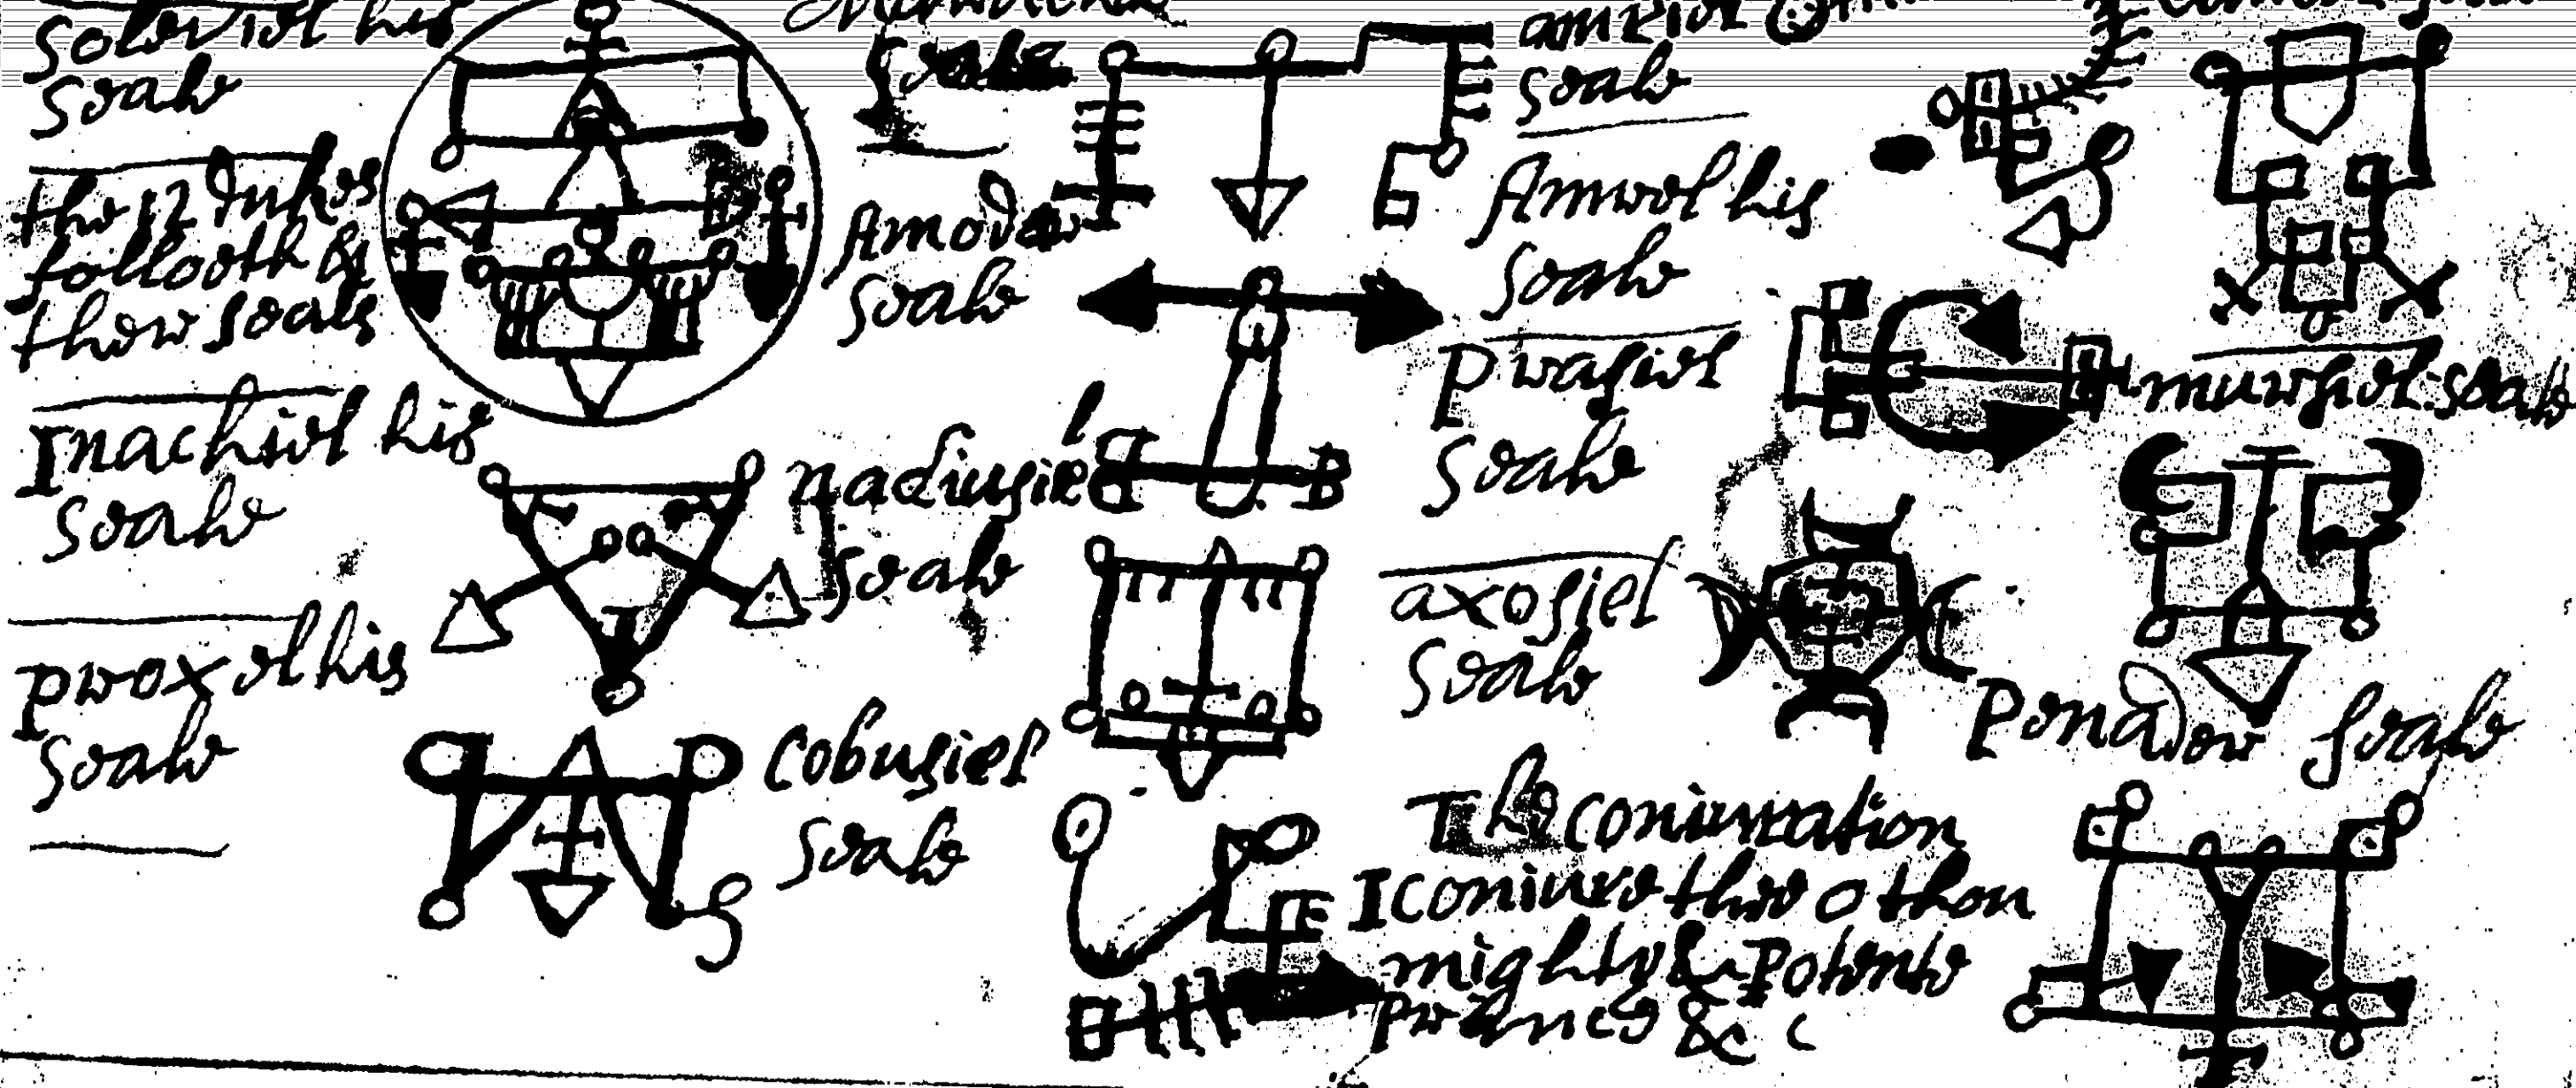 Soleviel his
Seale
the 12 dukes
followeth &
ther seals
Inachiel his
Seale
Proxel his
Seale
Seale
Amoder
Seale
nadiusiel
Seale
Cobusiel
Seale
amriel
Seale
Amrel his
Seale
Prasiel
Seale
axosiel
Seale
The coniuration
I coniure thee o thou
mighty & Potente
Prince &c
mursiel Seale
Penader Seale